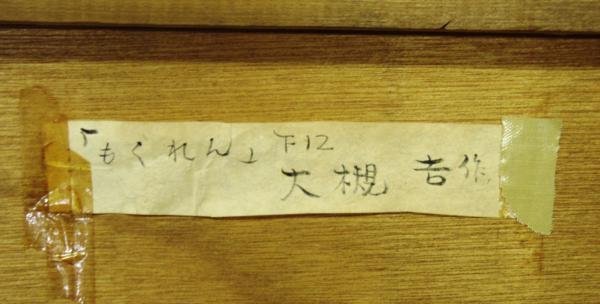 「もくれん」 F12
大槻 吉作